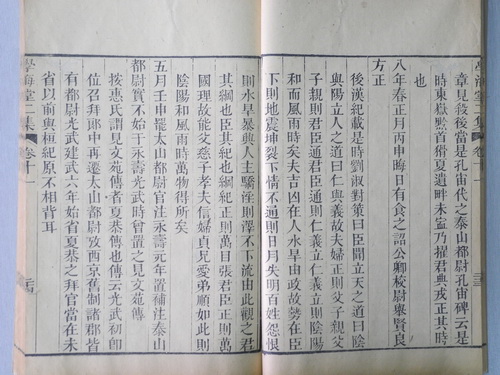 章見殺後當是孔宙代之泰山都尉孔宙碑云是
時東嶽黔首猾夏遺畔未寍乃擢君典戎正其時
也
八年春正月丙申晦日有食之詔公卿校尉舉賢良
方正
後漢紀載是時劉淑對策曰臣聞立天之道曰陰
與陽立人之道曰仁與義故夫婦正則父子親父
子親則君臣通君臣通則仁義立仁義立則陰陽
和而風雨時矣夫吉凶在人水旱由政故勢在臣
下則地震坤裂下情不通則日月失明百姓怨恨
則水旱暴興人主驕淫則澤不下流由此觀之君
其綱也臣其紀也綱紀正則萬目張君臣正則萬
國理故能父慈子孝夫信婦貞兄愛弟順如此則
陰陽和風雨時萬物得所矣
五月壬申罷太山都尉官注永壽元年置補注泰山
都尉實不始于永壽光武時曾置之見文苑傳
按惠氏謂見文苑傳者夏恭傳也傳云光武初卽
位召拜郎中再遷太山都尉攷西京舊制諸郡皆
有都尉光武建武六年始省夏恭之拜官當在未
省以前與桓紀原不相背耳
學海堂二集 卷十一